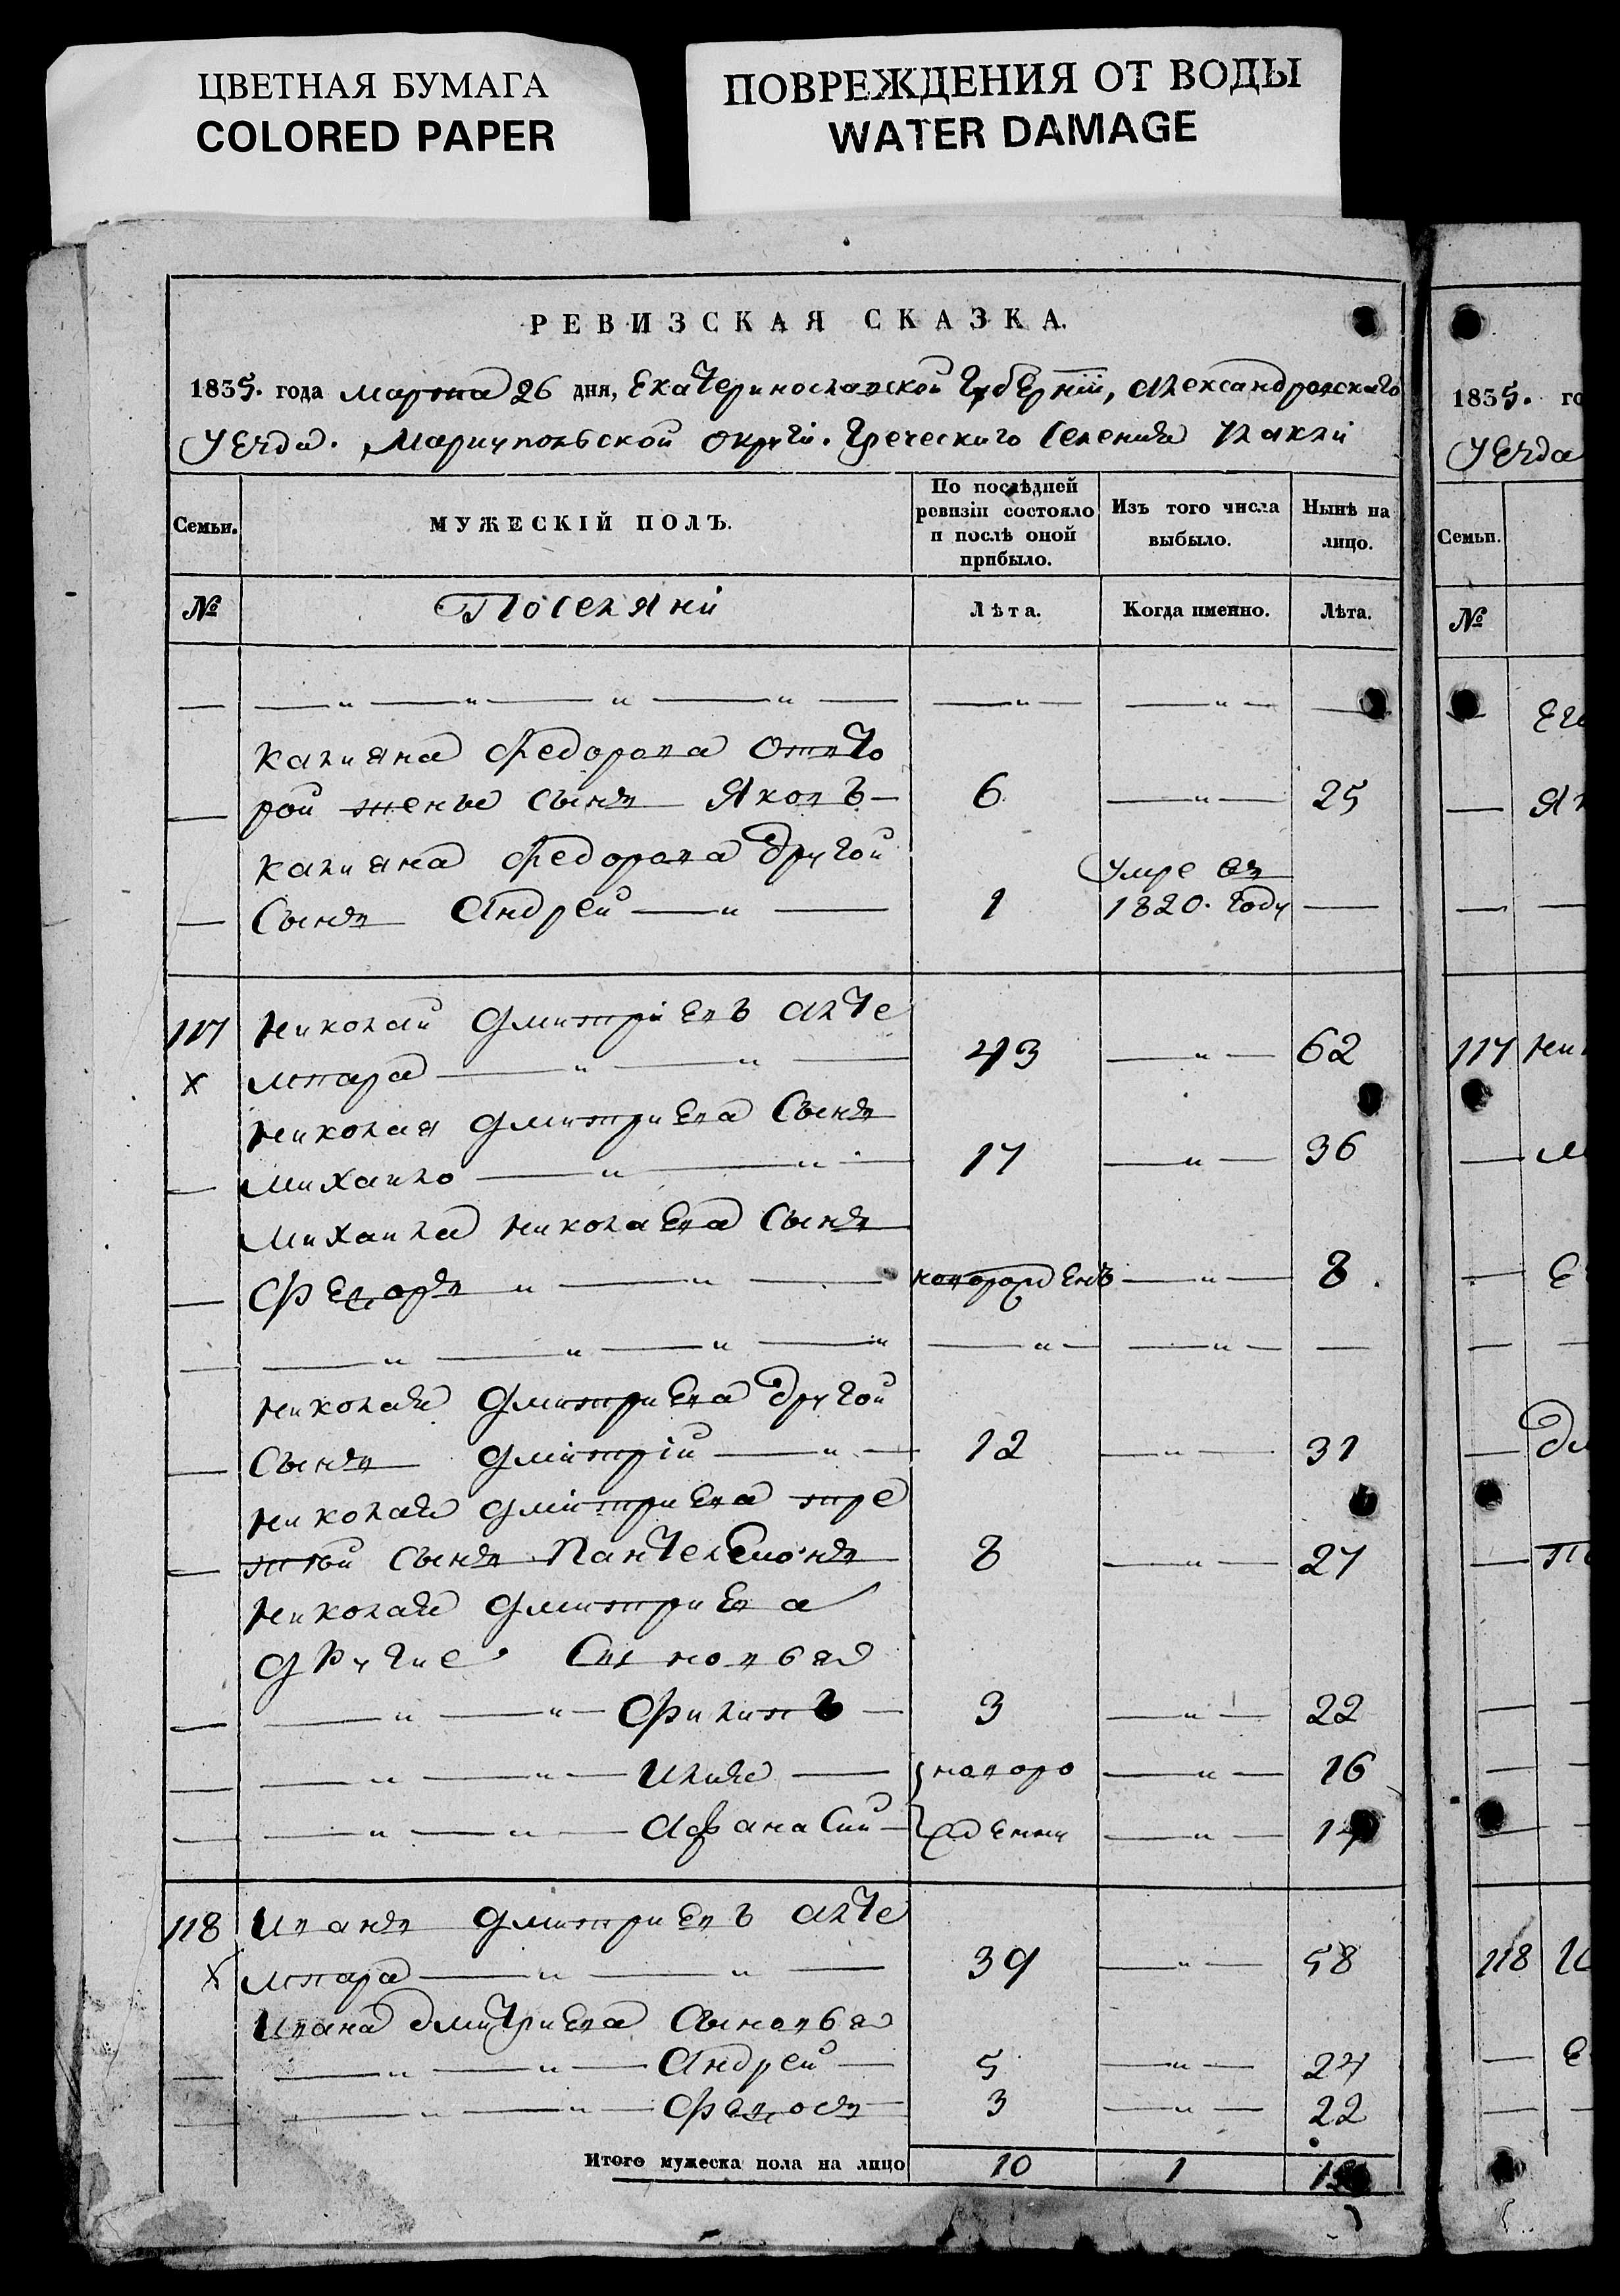 ЦВЕТНАЯ БУМАГА
COLORED PAPER
ПОВРЕЖДЕНИЯ ОТ ВОДЫ
WATER DAMAGE
РЕВИЗСКАЯ СКАЗКА.
1835. года марта 26 дня, Екатеринославской Губерніи, Александровскаго
Уезда. Мариупольской округи. Греческаго Селения
Семьи.
МУЖЕСКІЙ ПОЛЪ.
По послѣдней ревизіи состояло и послѣ оной прибыло.
Изъ того числа выбыло.
Нынѣ на лицо.
№
Поселяни
Лѣта.
Когда именно.
Лѣта.
— — " — " — " — " — — " — — " — —
Калияна Федорова отвто
— рой жены сынъ Яковъ — 6 — " — 25
Калияна Федорова другой
— Сынъ Андрей — " — 1 Умре въ 1820. году —
117 Николай Дмитріевъ Алте
х мпара — " — " — 43 — " — 62
Николая Дмитриева Сынъ
— Михаило — " — " — 17 — " — 36
Михаила Николаева Сынъ
— Федоръ " — " — новорожденъ — " — 8.
— — " — " — " — " — " — — " — —
Николая Дмитриева другой
— Сынъ Дмитрій — " — 12 — " — 31
Николая Дмитриева тре
— тий сынъ Пантелемонъ 8 — " — 27
Николая Дмитриева
Другие Сыновья
— — " — " — Филипъ — 3 — " — 22
— — " — " — Илия — новоро — " — 16
— — " — " — Афанасий — ждены — " — 14
118 Иванъ Дмитриевъ Алте
х мпара — " — " — 39 — " — 58
Ивана Дмитриева Сыновья
— — " — " — Андрей — 5 — " — 24
— — " — " — 3 — " — 22
Итого мужеска пола на лицо 10 1
1835. го
Уезда
Семьи.
№
117 Ник
118 И